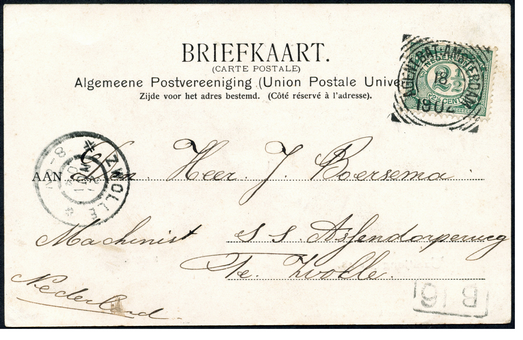 BRIEFKAART.
(CARTE POSTALE)
Algemeene Postvereeniging (Union Postale Unive
Zijde voor het adres bestemd. (Côté réservé à l'adresse).
AMSTERDAM
1902
2½
CENT
ZWOLLE
AAN Den Heer J. Boersema
Machinist s.s. Assendorperweg
Te Zwolle
Nederland
B 16